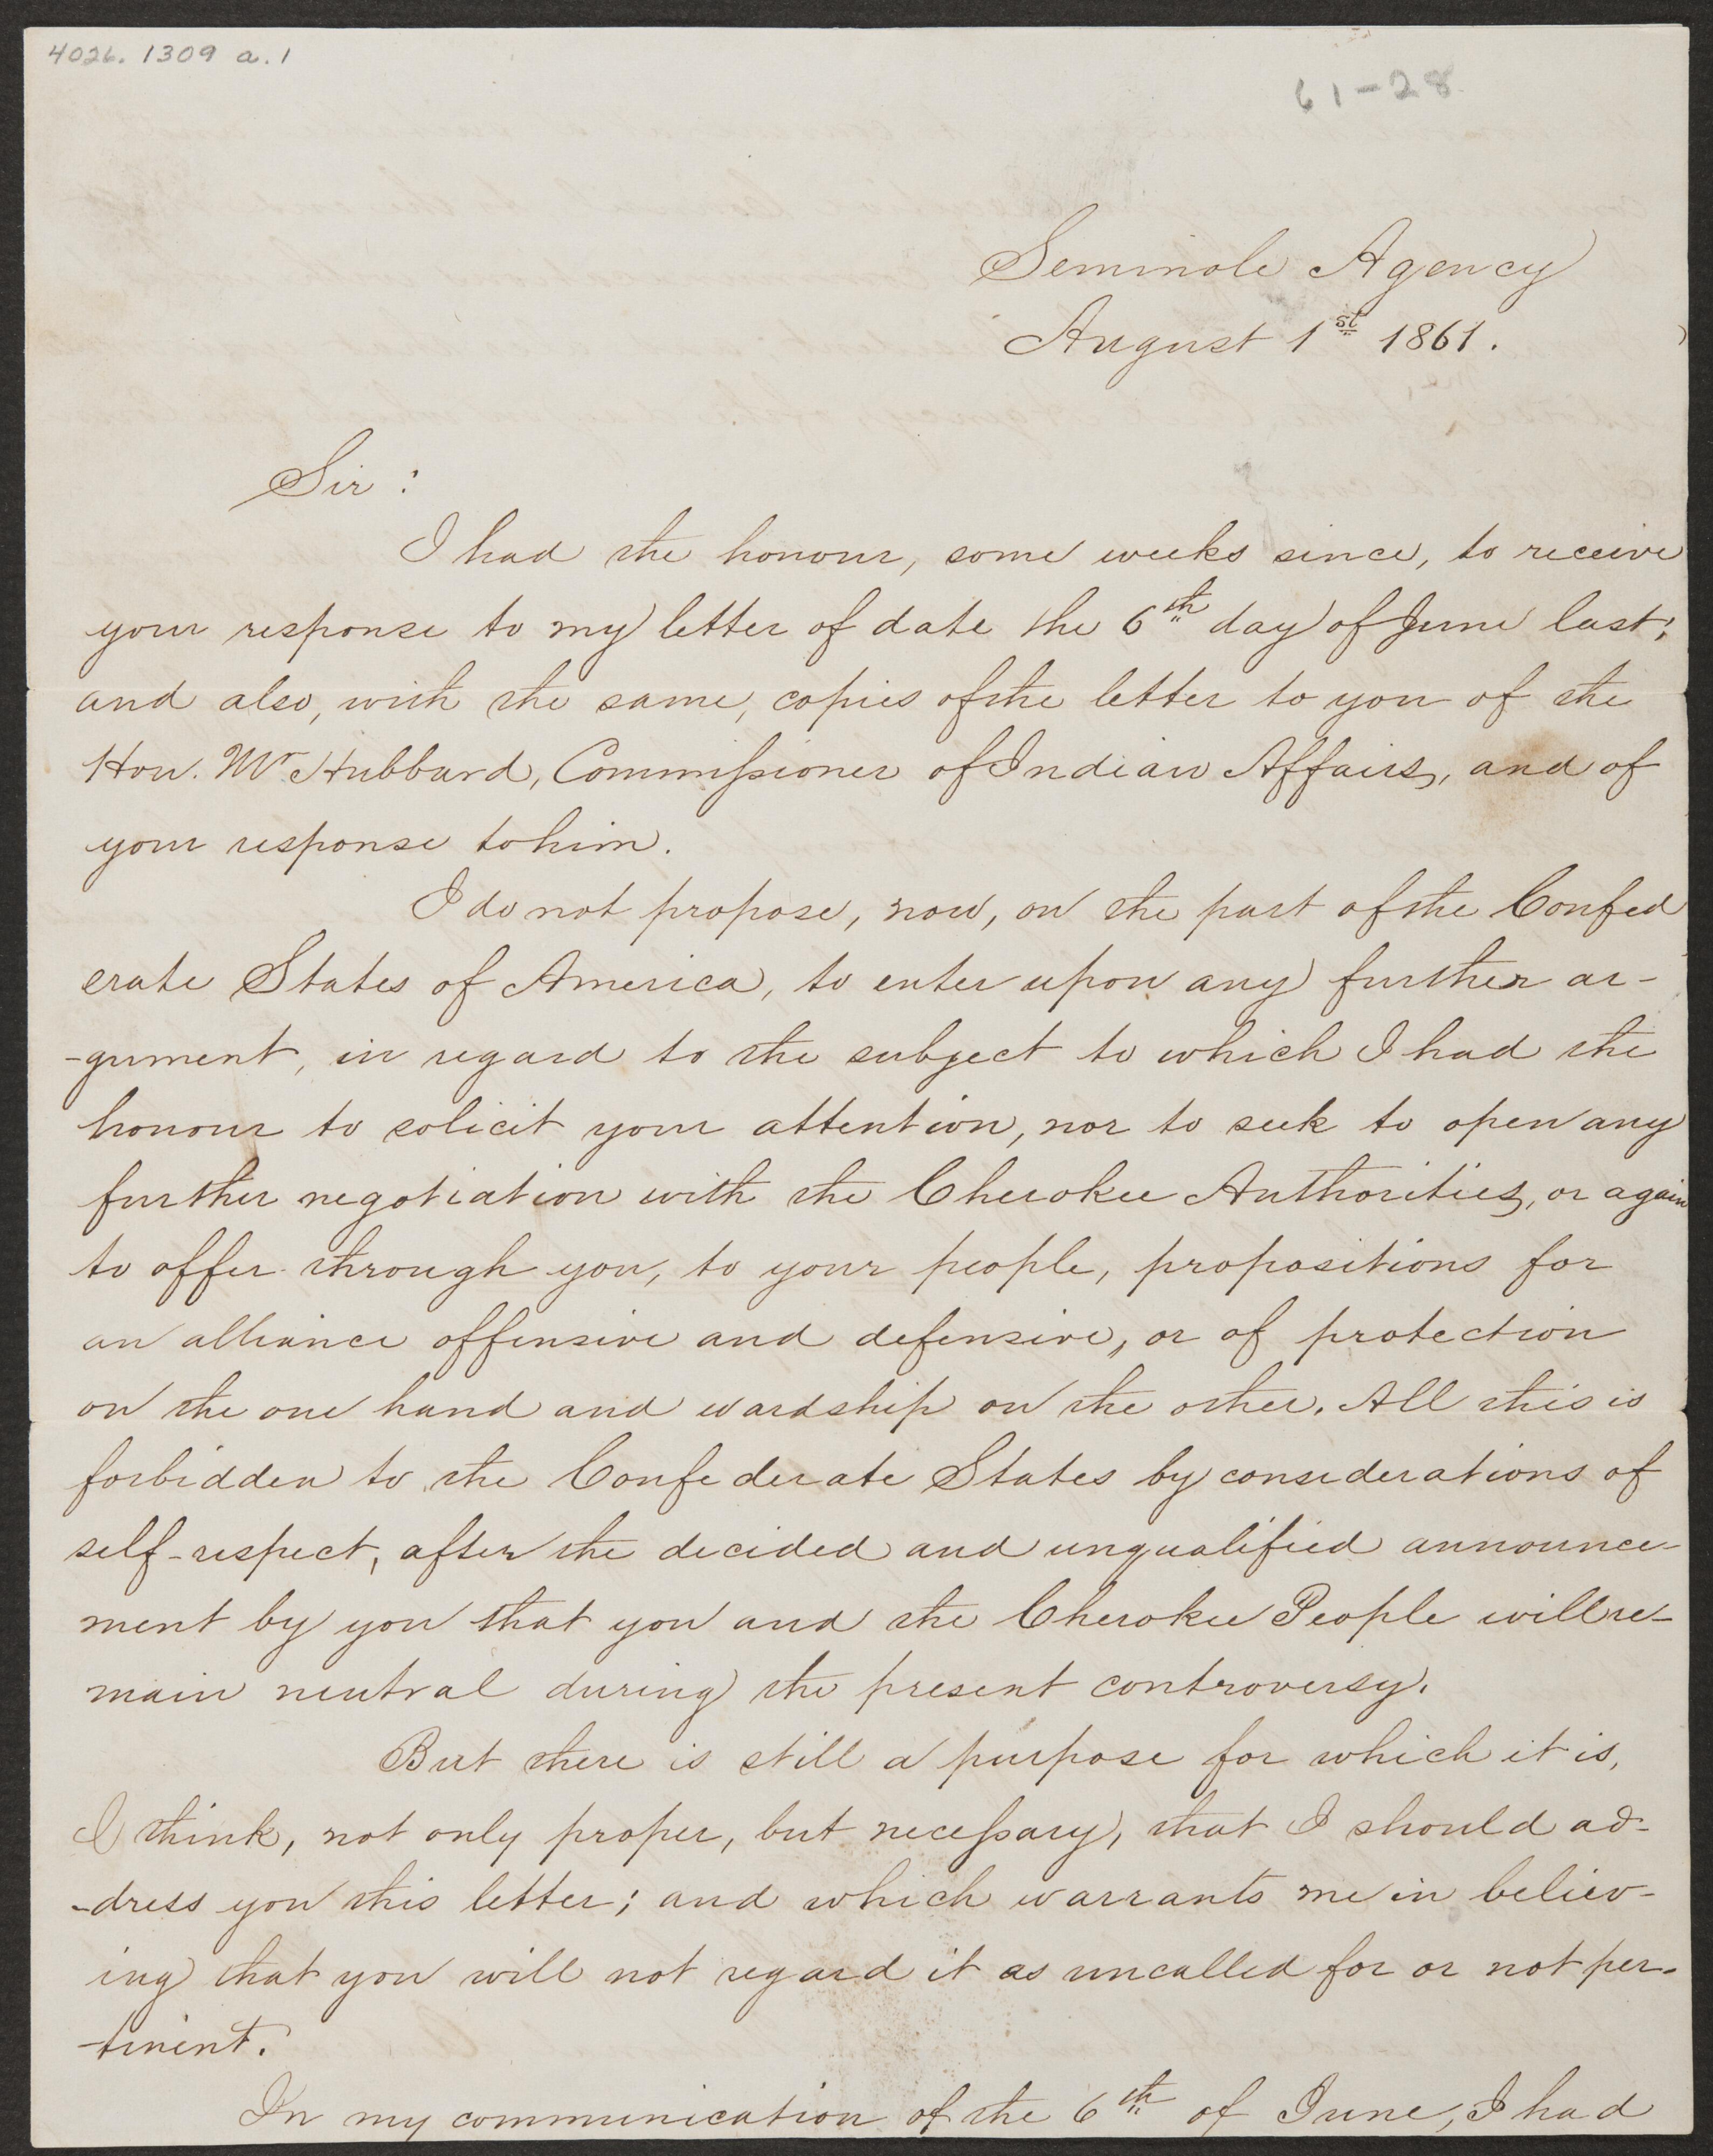 4026. 1309 a.1
61-28
Seminole Agency
August 1st 1861.
Sir :
I had the honour, some weeks since, to receive
your response to my letter of date the 6th day of June last;
and also, with the same, copies of the letter to you of the
Hon. Mr Hubbard, Commissioner of Indian Affairs, and of
your response to him.
I do not propose, now, on the part of the Confed
erate States of America, to enter upon any further ar-
-gument, in regard to the subject to which I had the
honour to solicit your attention, nor to seek to open any
further negotiation with the Cherokee Authorities, or again
to offer through you, to your people, propositions for
an alliance offensive and defensive, or of protection
on the one hand and wardship on the other. All this is
forbidden to the Confederate States by considerations of
self-respect, after the decided and unqualified announce-
ment by you that you and the Cherokee People will re-
main neutral during the present controversy.
But there is still a purpose for which it is,
I think, not only proper, but necessary, that I should ad-
-dress you this letter; and which warrants me in believ-
ing that you will not regard it as uncalled for or not per-
-tinent.
In my communication of the 6th of June, I had